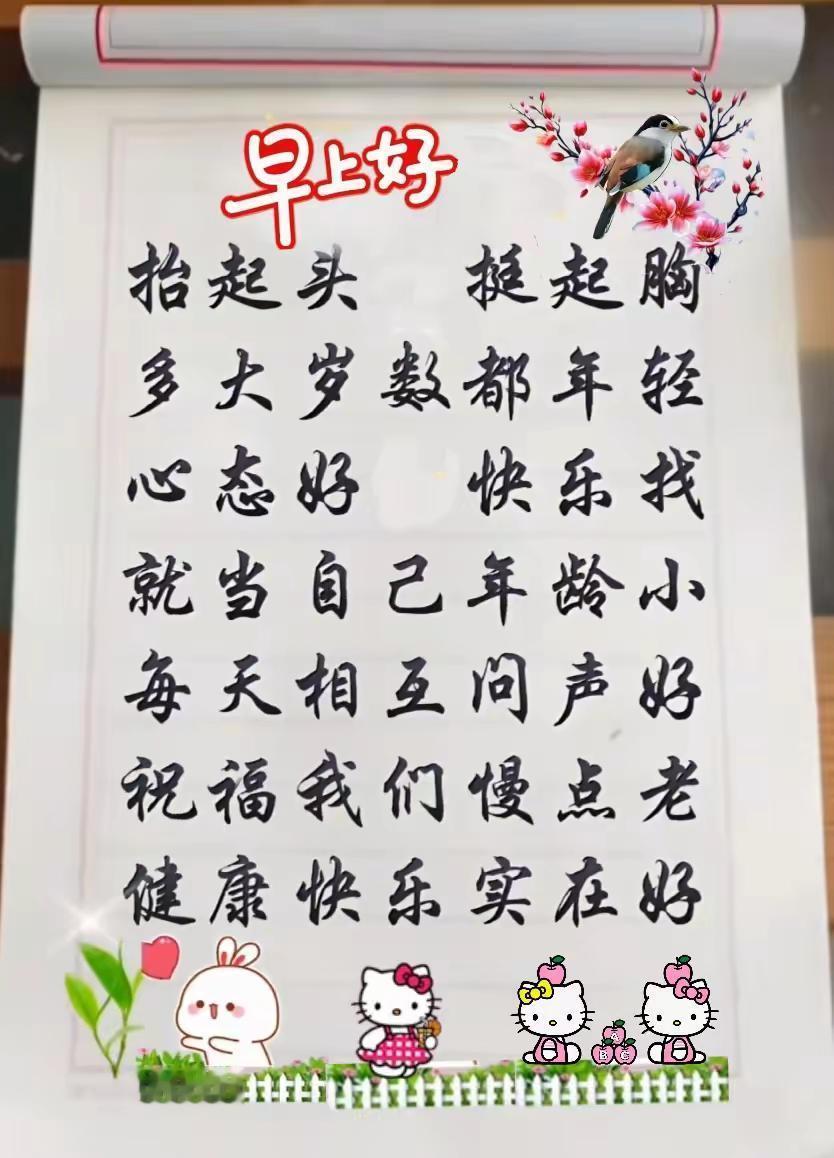 早上好
抬起头 挺起胸
多大岁数都年轻
心态好 快乐找
就当自己年龄小
每天相互问声好
祝福我们慢点老
健康快乐实在好
A
B C